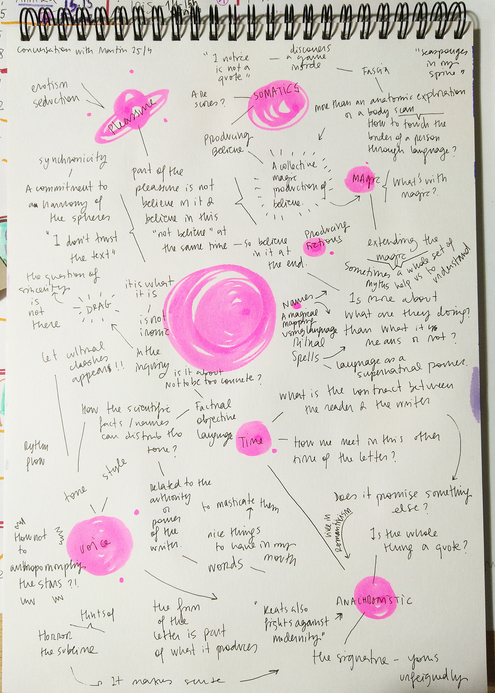 Conversation with Martin 25/4
"I notice
is not a
quote"
discovers
a game
inside
Fascia
"seasponges
in my
spine"
erotism
seduction
Pleasure
Are
scores?
SOMATICS
more than an anatomic exploration
or a body scan
How to touch the
border of a person
through language?
Producing
Believe
A collective
magic
production of
believe.
MAGIC
What's with
magic?
synchronicity
A commitment to
an harmony of
the spheres
"I don't trust
the text"
part of the
pleasure is not
believe in it &
believe in this
"not believe" at
the same time — so believe
in it at
the end.
Producing
fictions
extending the
magic
Sometimes a whole set of
myths help us to understand
the question of
sincerity
is
not
there
DRAG
it is what
it is
is not
ironic
in the
inquiry
Names
A magical
mapping
using language
Ritual
Spells
Is more about
what are they doing?
than what it is
means or not?
language as a
supernatural power.
let cultural
clashes
appears!!!
is it about
Not to be too concrete?
How the scientific
facts/names
can disturb the
tone?
Factual
objective
language
Time
what is the contract between
the reader & the writer
How we meet in this other
time of the letter?
Rythm
flow
tone
style
voice
Related to the
authority
or
power
of the
writer.
to masticate them
nice things
to have in my
words
mouth
Does it promise something
else?
Is the whole
thing a quote?
How not
to
anthropomorphize
the stars?!!
Hints of
Horror
the sublime
the form
of the
letter is part
of what it produces
"Keats also
fights against
modernity"
ANACHRONISTIC
the signature — yours
unfeignedly
It makes sense